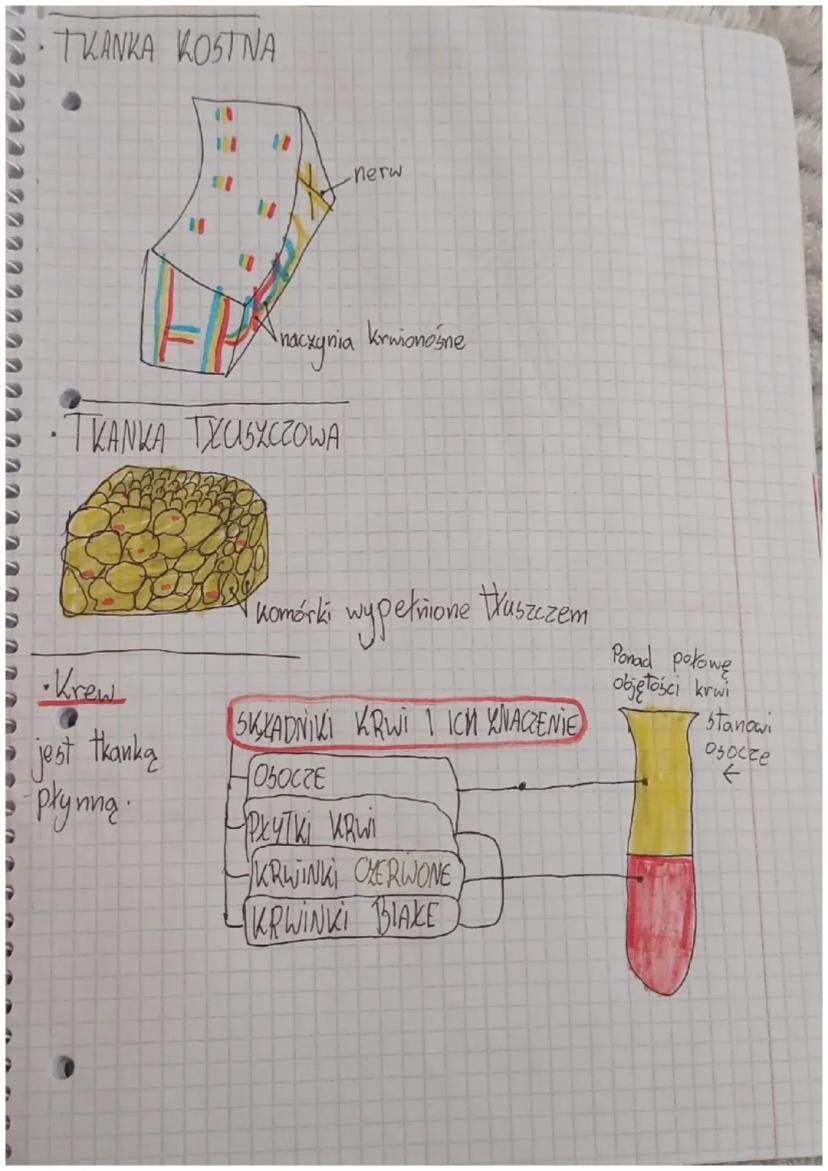 · TKANKA KOSTNA
nerw
naczynia krwionośne
· TKANKA TŁUSZCZOWA
komórki wypełnione tłuszczem
· Krew
jest tkanką
płynną.
SKŁADNIKI KRWI I ICH ZNACZENIE
OSOCZE
PŁYTKI KRWI
KRWINKI CZERWONE
KRWINKI BIAŁE
Ponad połowę
objętości krwi
stanowi
osocze
←